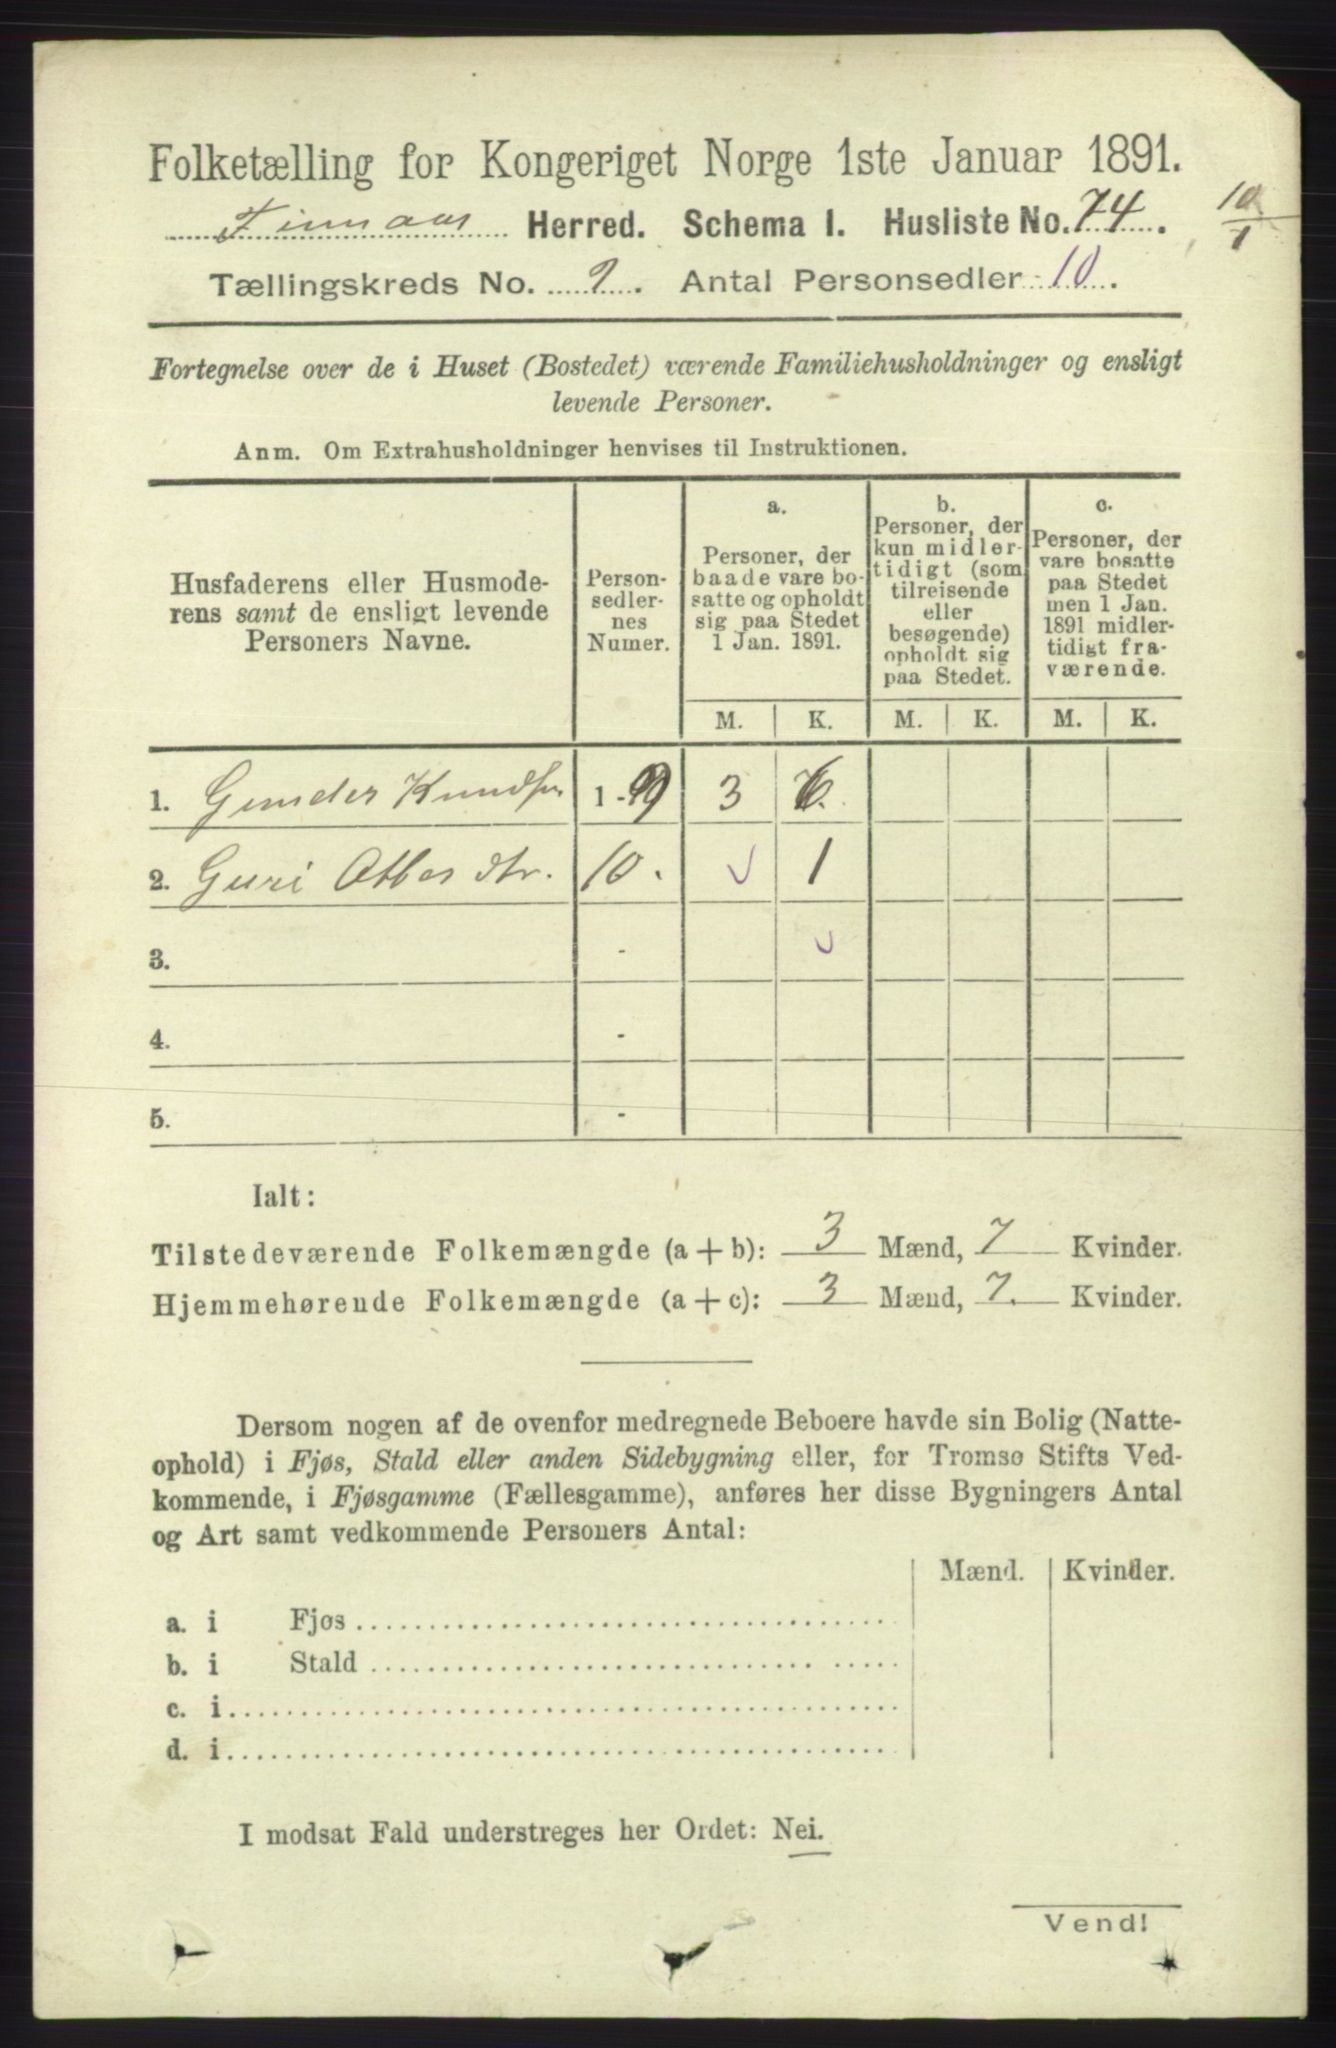 Folketælling for Kongeriget Norge 1ste Januar 1891.
Finnaas Herred. Schema I. Husliste No. 74.
10
1
Tællingskreds No. 9. Antal Personsedler 10.
Fortegnelse over de i Huset (Bostedet) værende Familiehusholdninger og ensligt
levende Personer.
Anm. Om Extrahusholdninger henvises til Instruktionen.
Husfaderens eller Husmode-
rens samt de ensligt levende
Personers Navne.
Person-
sedler-
nes
Numer.
a.
Personer, der
baade vare bo-
satte og opholdt
sig paa Stedet
1 Jan. 1891.
b.
Personer, der
kun midler-
tidigt (som
tilreisende
eller
besøgende)
opholdt sig
paa Stedet.
c.
Personer, der
vare bosatte
paa Stedet
men 1 Jan.
1891 midler-
tidigt fra-
værende.
M. K. M. K. M. K.
1. Gunder Knudsen 1 - 9 3 6.
2. Guri Otter dtr. 10. 1
3. -
4. -
5. -
Ialt:
Tilstedeværende Folkemængde (a + b): 3 Mænd, 7 Kvinder.
Hjemmehørende Folkemængde (a + c): 3 Mænd, 7. Kvinder.
Dersom nogen af de ovenfor medregnede Beboere havde sin Bolig (Natte-
ophold) i Fjøs, Stald eller anden Sidebygning eller, for Tromsø Stifts Ved-
kommende, i Fjøsgamme (Fællesgamme), anføres her disse Bygningers Antal
og Art samt vedkommende Personers Antal:
Mænd. Kvinder.
a. i Fjøs
b. i Stald
c. i
d. i
I modsat Fald understreges her Ordet: Nei.
Vend!